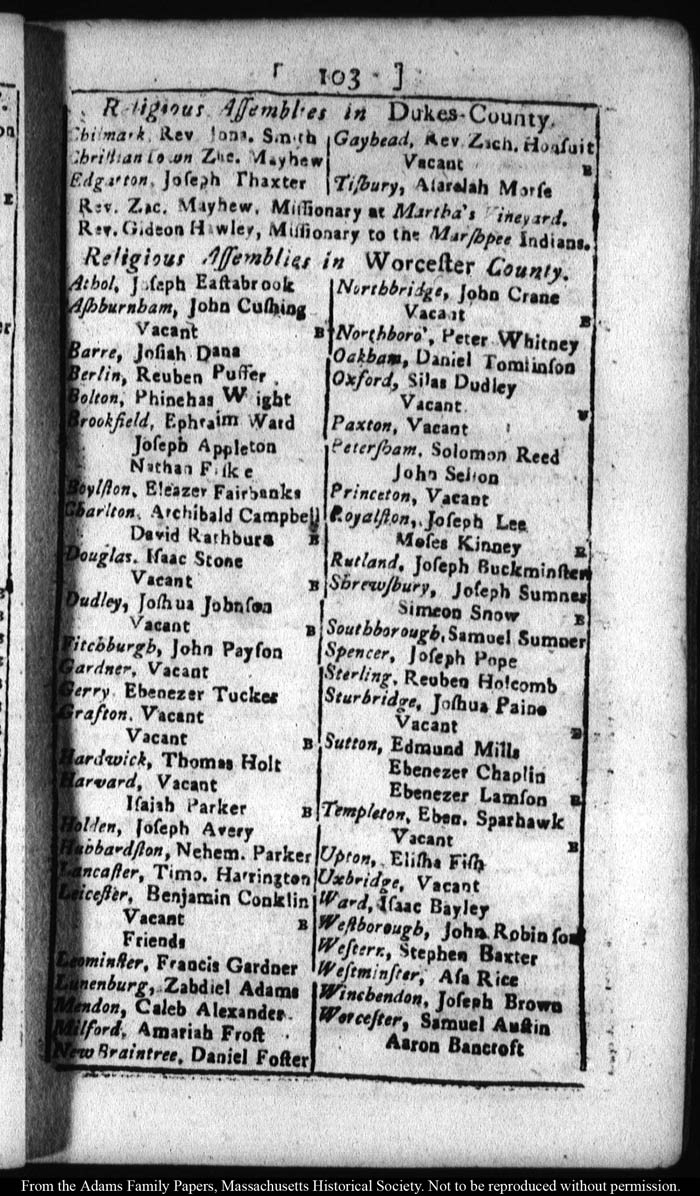 [ 103 ]
Religious Aſſemblies in Dukes-County.
Chilmark, Rev. Jona. Smith
Chriſtian town Zac. Mayhew
Edgarton, Joſeph Thaxter
Gayhead, Rev. Zach. Hoſſuit
Vacant B
Tiſbury, Aſarelah Morſe
Rev. Zac. Mayhew, Miſſionary at Martha's Vineyard.
Rev. Gideon Hawley, Miſſionary to the Marſhpee Indians.
Religious Aſſemblies in Worceſter County.
Athol, Joſeph Eaſtabrook
Aſhburnham, John Cuſhing
Vacant B
Barre, Joſiah Dana
Berlin, Reuben Puffer
Bolton, Phinehas Wright
Brookfield, Ephraim Ward
Joſeph Appleton
Nathan Fiſke
Boylſton, Eleazer Fairbanks
Charlton, Archibald Campbell
David Rathburn B
Douglas, Iſaac Stone
Vacant B
Dudley, Joſhua Johnſon
Vacant B
Fitchburgh, John Payſon
Gardner, Vacant
Gerry, Ebenezer Tucker
Grafton, Vacant
Vacant B
Hardwick, Thomas Holt
Harvard, Vacant
Iſaiah Parker B
Holden, Joſeph Avery
Hubbardſton, Nehem. Parker
Lancaſter, Timo. Harrington
Leiceſter, Benjamin Conklin
Vacant B
Friends
Leominſter, Francis Gardner
Lunenburg, Zabdiel Adams
Mendon, Caleb Alexander.
Milford, Amariah Froſt
New Braintree, Daniel Foſter
Northbridge, John Crane
Vacant B
Northboro', Peter Whitney
Oakham, Daniel Tomlinſon
Oxford, Silas Dudley
Vacant
Paxton, Vacant
Peterſham, Solomon Reed
John
Princeton, Vacant
Royalſton, Joſeph Lee
Moſes Kinney B
Rutland, Joſeph Buckminſter
Shrewſbury, Joſeph Sumner
Simeon Snow B
Southborough, Samuel Sumner
Spencer, Joſeph Pope
Sterling, Reuben Holcomb
Sturbridge, Joſhua Paine
Vacant B
Sutton, Edmund Mills
Ebenezer Chaplin
Ebenezer Lamſon B
Templeton, Eben. Sparhawk
Vacant B
Upton, Eliſha Fiſh
Uxbridge, Vacant
Ward, Iſaac Bayley
Weſtborough, John Robinſon
Weſtern, Stephen Baxter
Weſtminſter, Aſa Rice
Winchendon, Joſeph Brown
Worceſter, Samuel Auſtin
Aaron Bancroft
From the Adams Family Papers, Massachusetts Historical Society. Not to be reproduced without permission.